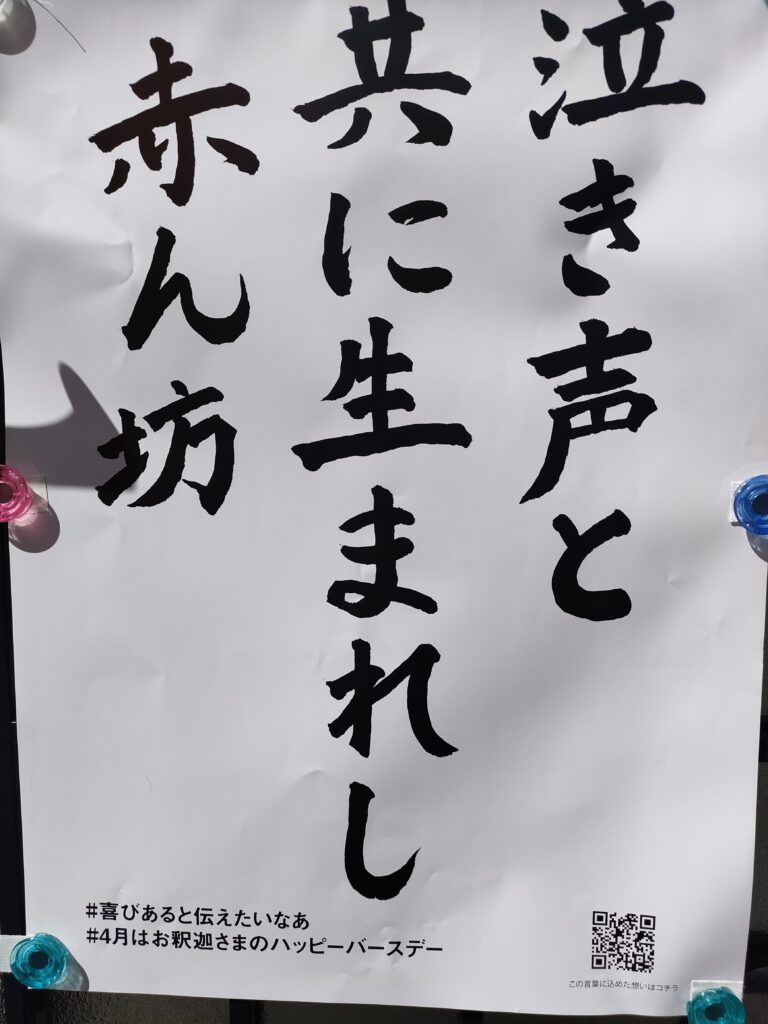 泣き声と
共に生まれし
赤ん坊
#喜びあると伝えたいなあ
#4月はお釈迦さまのハッピーバースデー
この言葉に込めた想いはコチラ